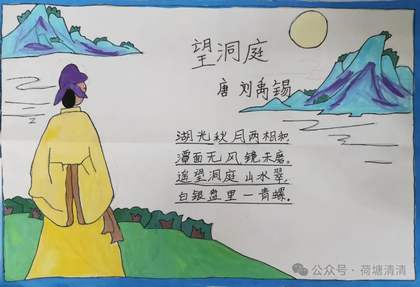 望洞庭
唐 刘禹锡
湖光秋月两相和
潭面无风镜未磨。
遥望洞庭山水翠,
白银盘里一青螺.
公众号·荷塘清清